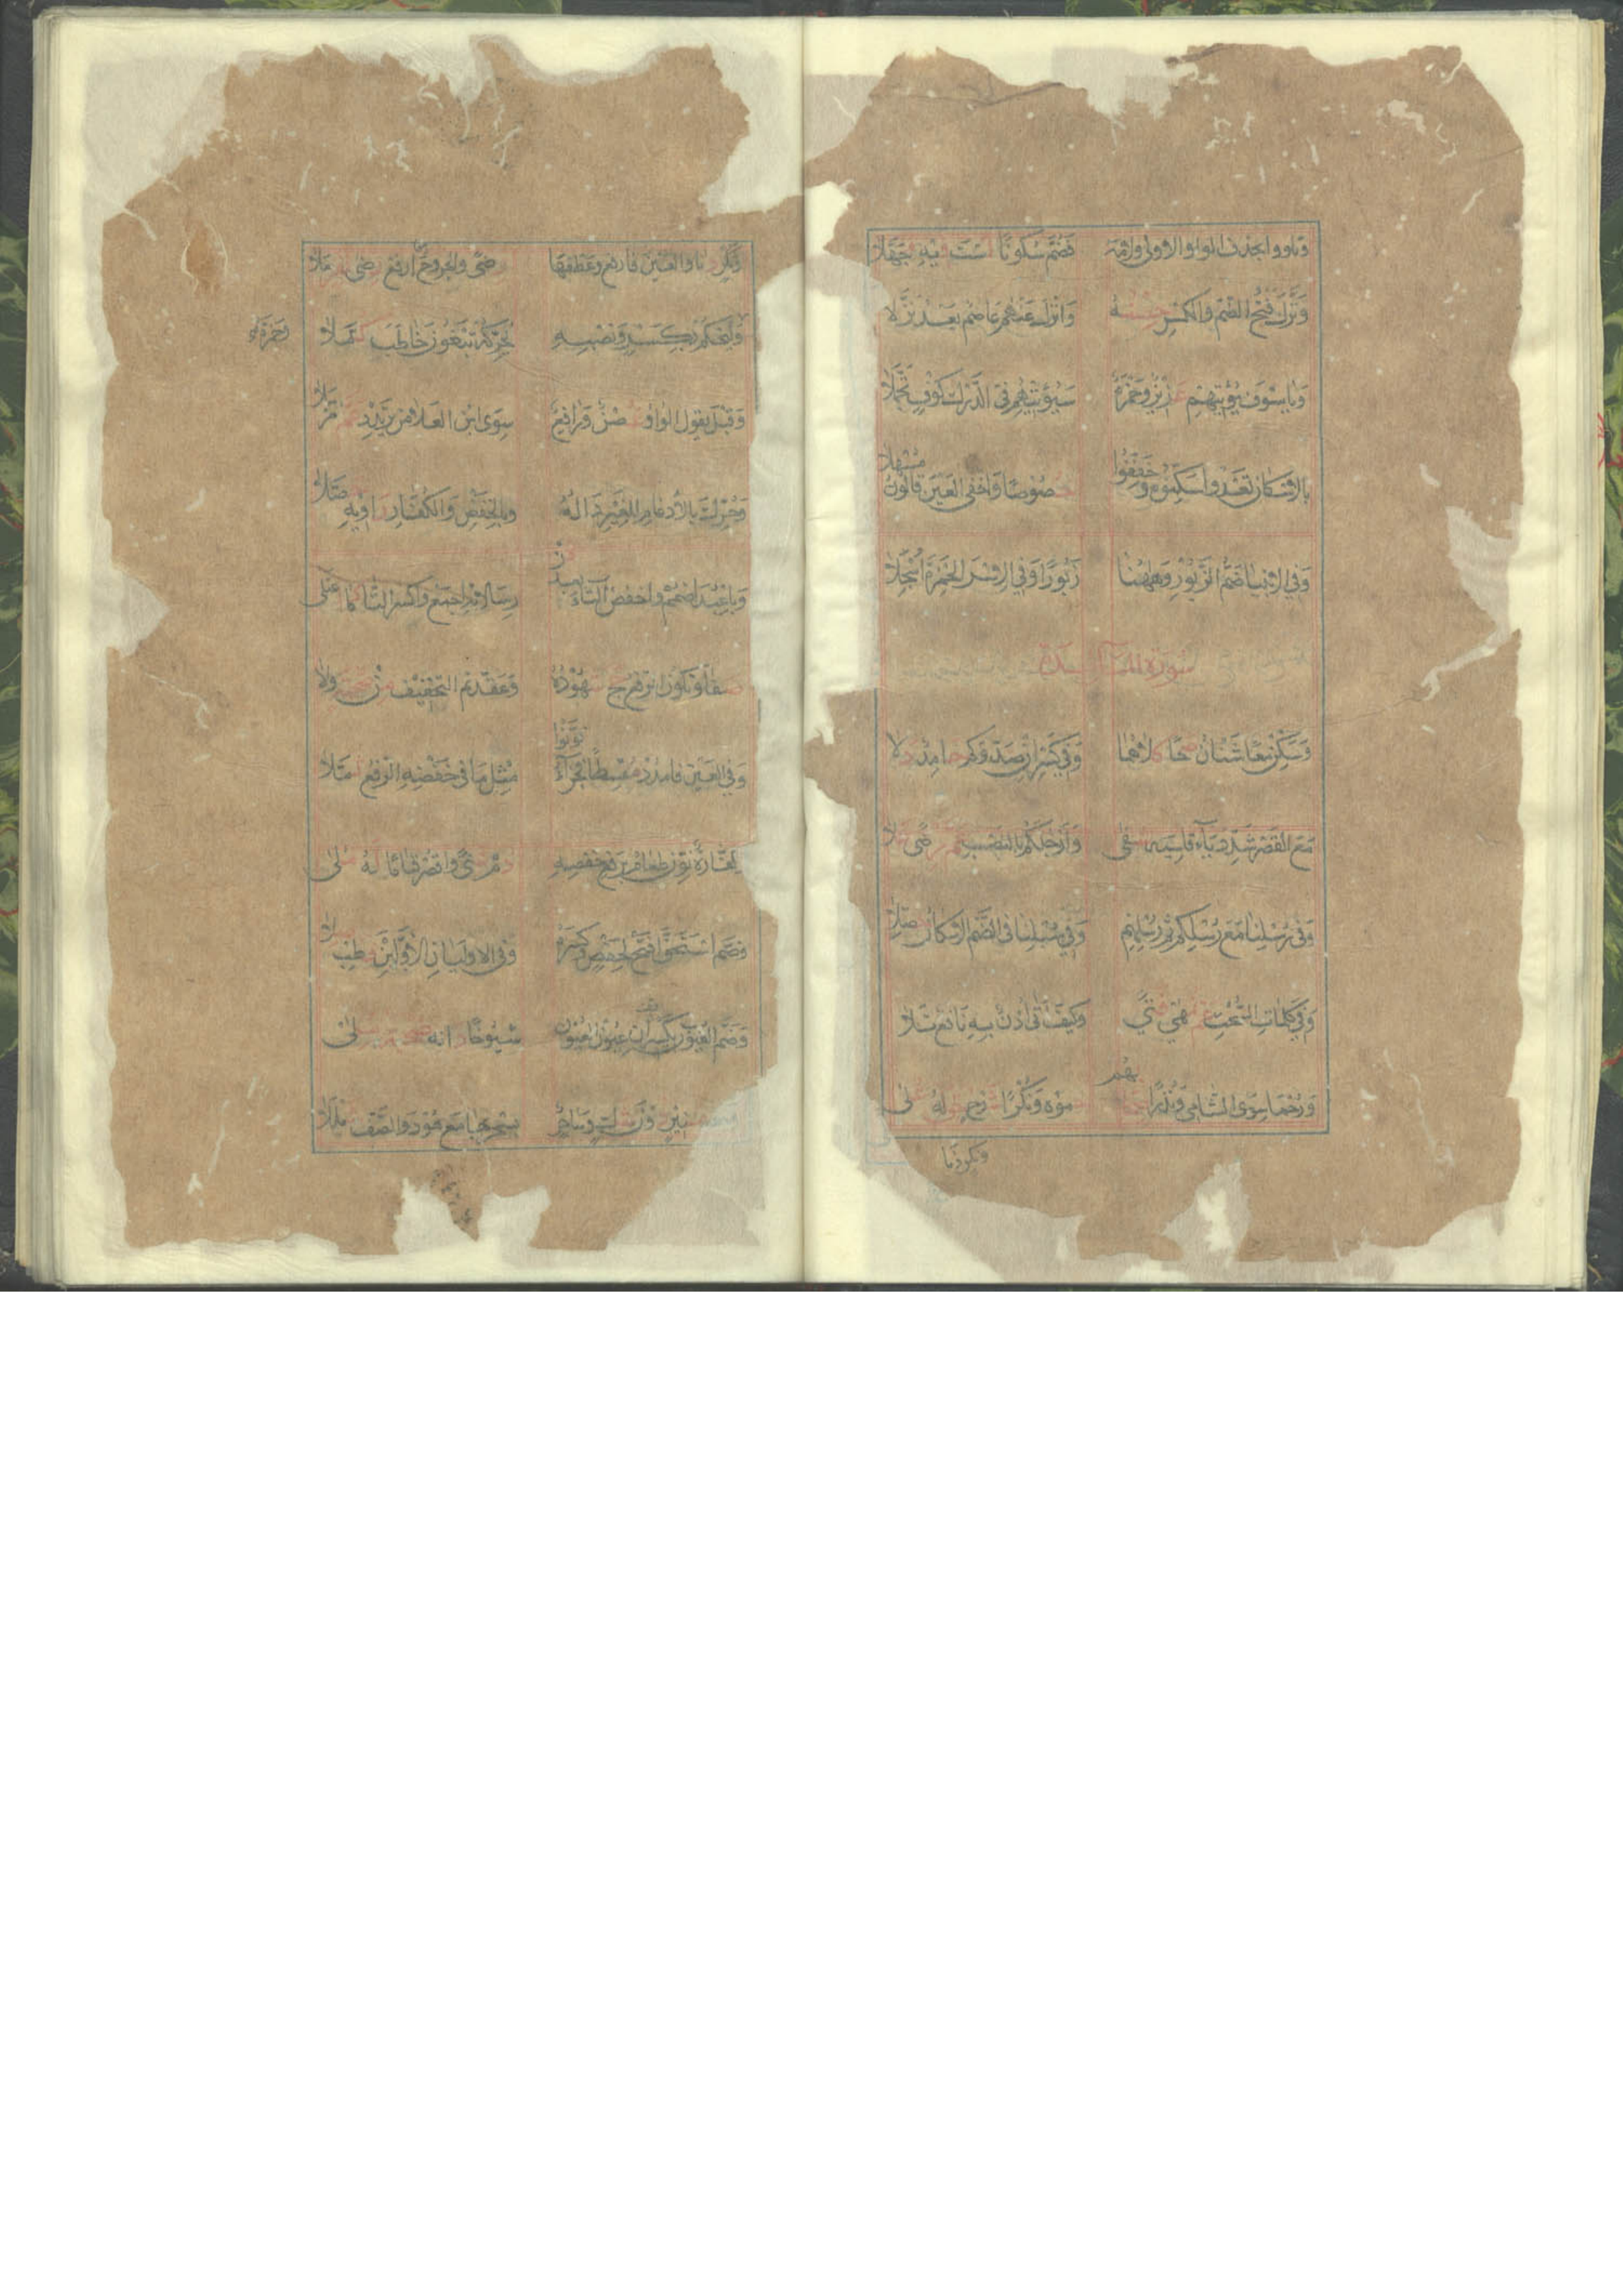 وتلووا بحذف الواو الاولى ولامه فضم سكونا لست فيه مجهلا
ونزل فتح الضم والكسر حصنه وانزل عنهم عاصم بعد نزلا
ويا سوف يؤتيهم عزيز وحمزة سيؤتيهم في الدرك كوف تحملا
بالاسكان تعدوا سكنوه وخففوا خصوصا واخفى العين قالون مسهلا
وفي الانبيا ضم الزبور وههنا زبورا وفي الاسرا لحمزة اسجلا
سورة المائدة
وسكن معا شنان صحا كلاهما وفي كسر ان صدوكم حامد دلا
مع القصر شدد ياء قاسية شفى وارجلكم بالنصب عم رضى علا
وفي رسلنا مع رسلكم ثم رسلهم وفي سبلنا في الضم الاسكان حصلا
وفي كلمات السحت عم نهى فتى وكيف اتى اذن به نافع تلا
ورحما سوى الشامي ونذرا صحابهم حموه ونكرا شرع حق له علا
ونكر دنا
ونكر دنا والعين فارفع وعطفها رضى والجروح ارفع رضى نفر ملا
وليحكم بكسر ونصبه يحركه تبغون خاطب كملا
لحمزة
وقبل يقول الواو غصن ورافع سوى ابن العلا من يرتدد عم مرسلا
وحرك بالادغام للغير داله وبالخفض والكفار راويه حصلا
وبا عبد اضمم واخفض التاء بعد فز رسالاته اجمع واكسر التا كما اعتلى
صفا وتكون الرفع حج شهوده وعقدتم التخفيف من صحبة ولا
وفي العين فامدد مقسطا فجزاء نونوا مثل ما في خفضه الرفع ثملا
وكفارة نون طعام برفع خفضه دم غنى واقصر قياما له ملا
وضم استحق افتح لحفص وكسره وفي الاوليان الاولين فطب صلا
وضم الغيوب يكسران عيونا العيون شيوخا دانه صحبة ملا
جيوب منير دون شك وساحر بسحر بها مع هود والصف شمللا